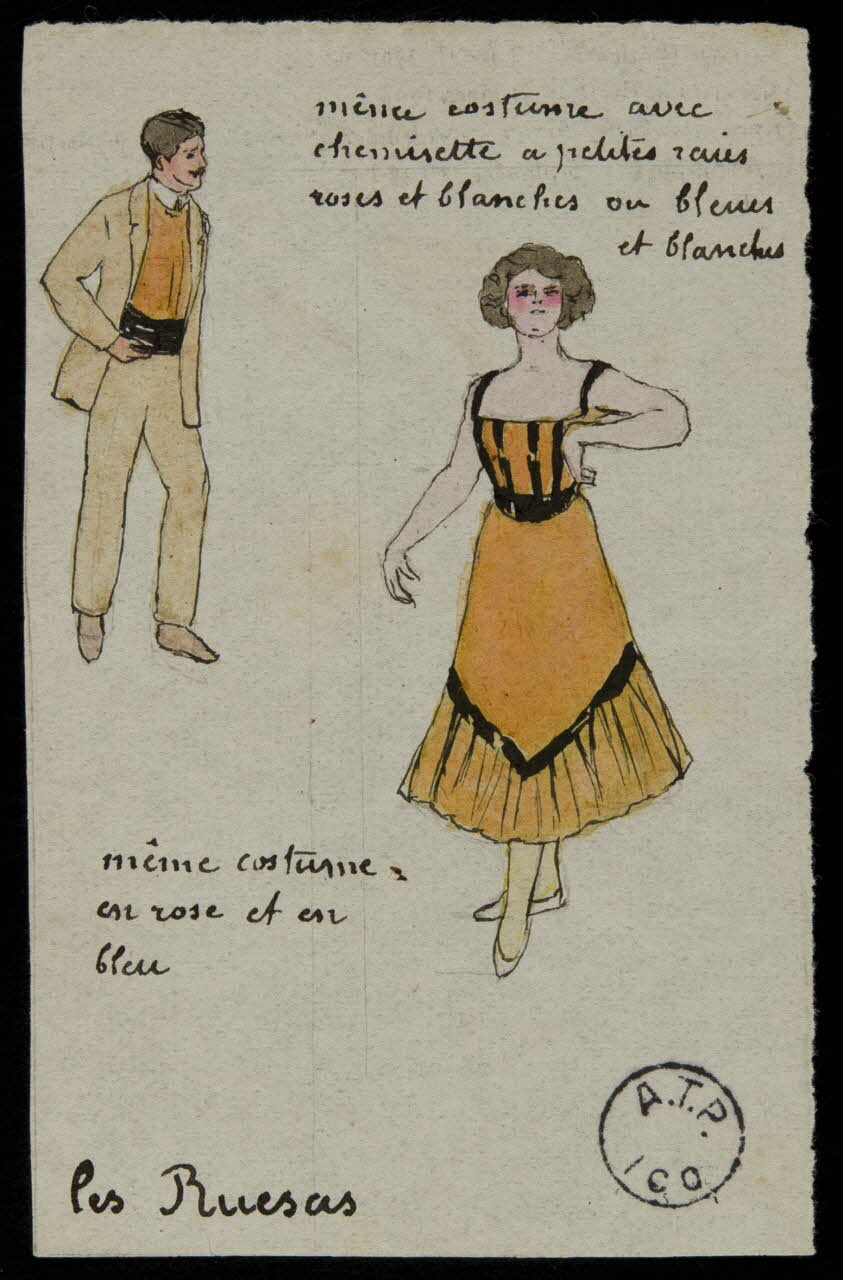 même costume avec
chemisette a petites raies
roses et blanches ou bleues
et blanches
même costume
en rose et en
bleu
A.T.P.
ICO
les Ruesas